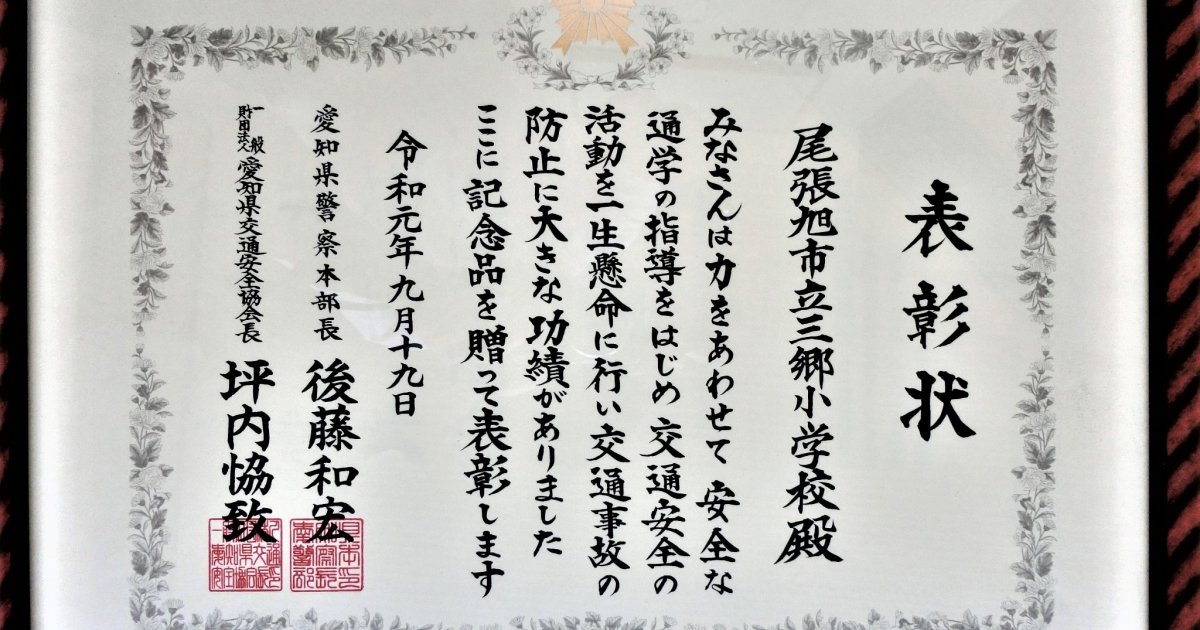 表彰状
尾張旭市立三郷小学校殿
みなさんは力をあわせて 安全な
通学の指導をはじめ 交通安全の
活動を一生懸命に行い 交通事故の
防止に大きな功績がありました
ここに記念品を贈って表彰します
令和元年九月十九日
愛知県警察本部長 後藤和宏
一般財団法人 愛知県交通安全協会長 坪内恊致